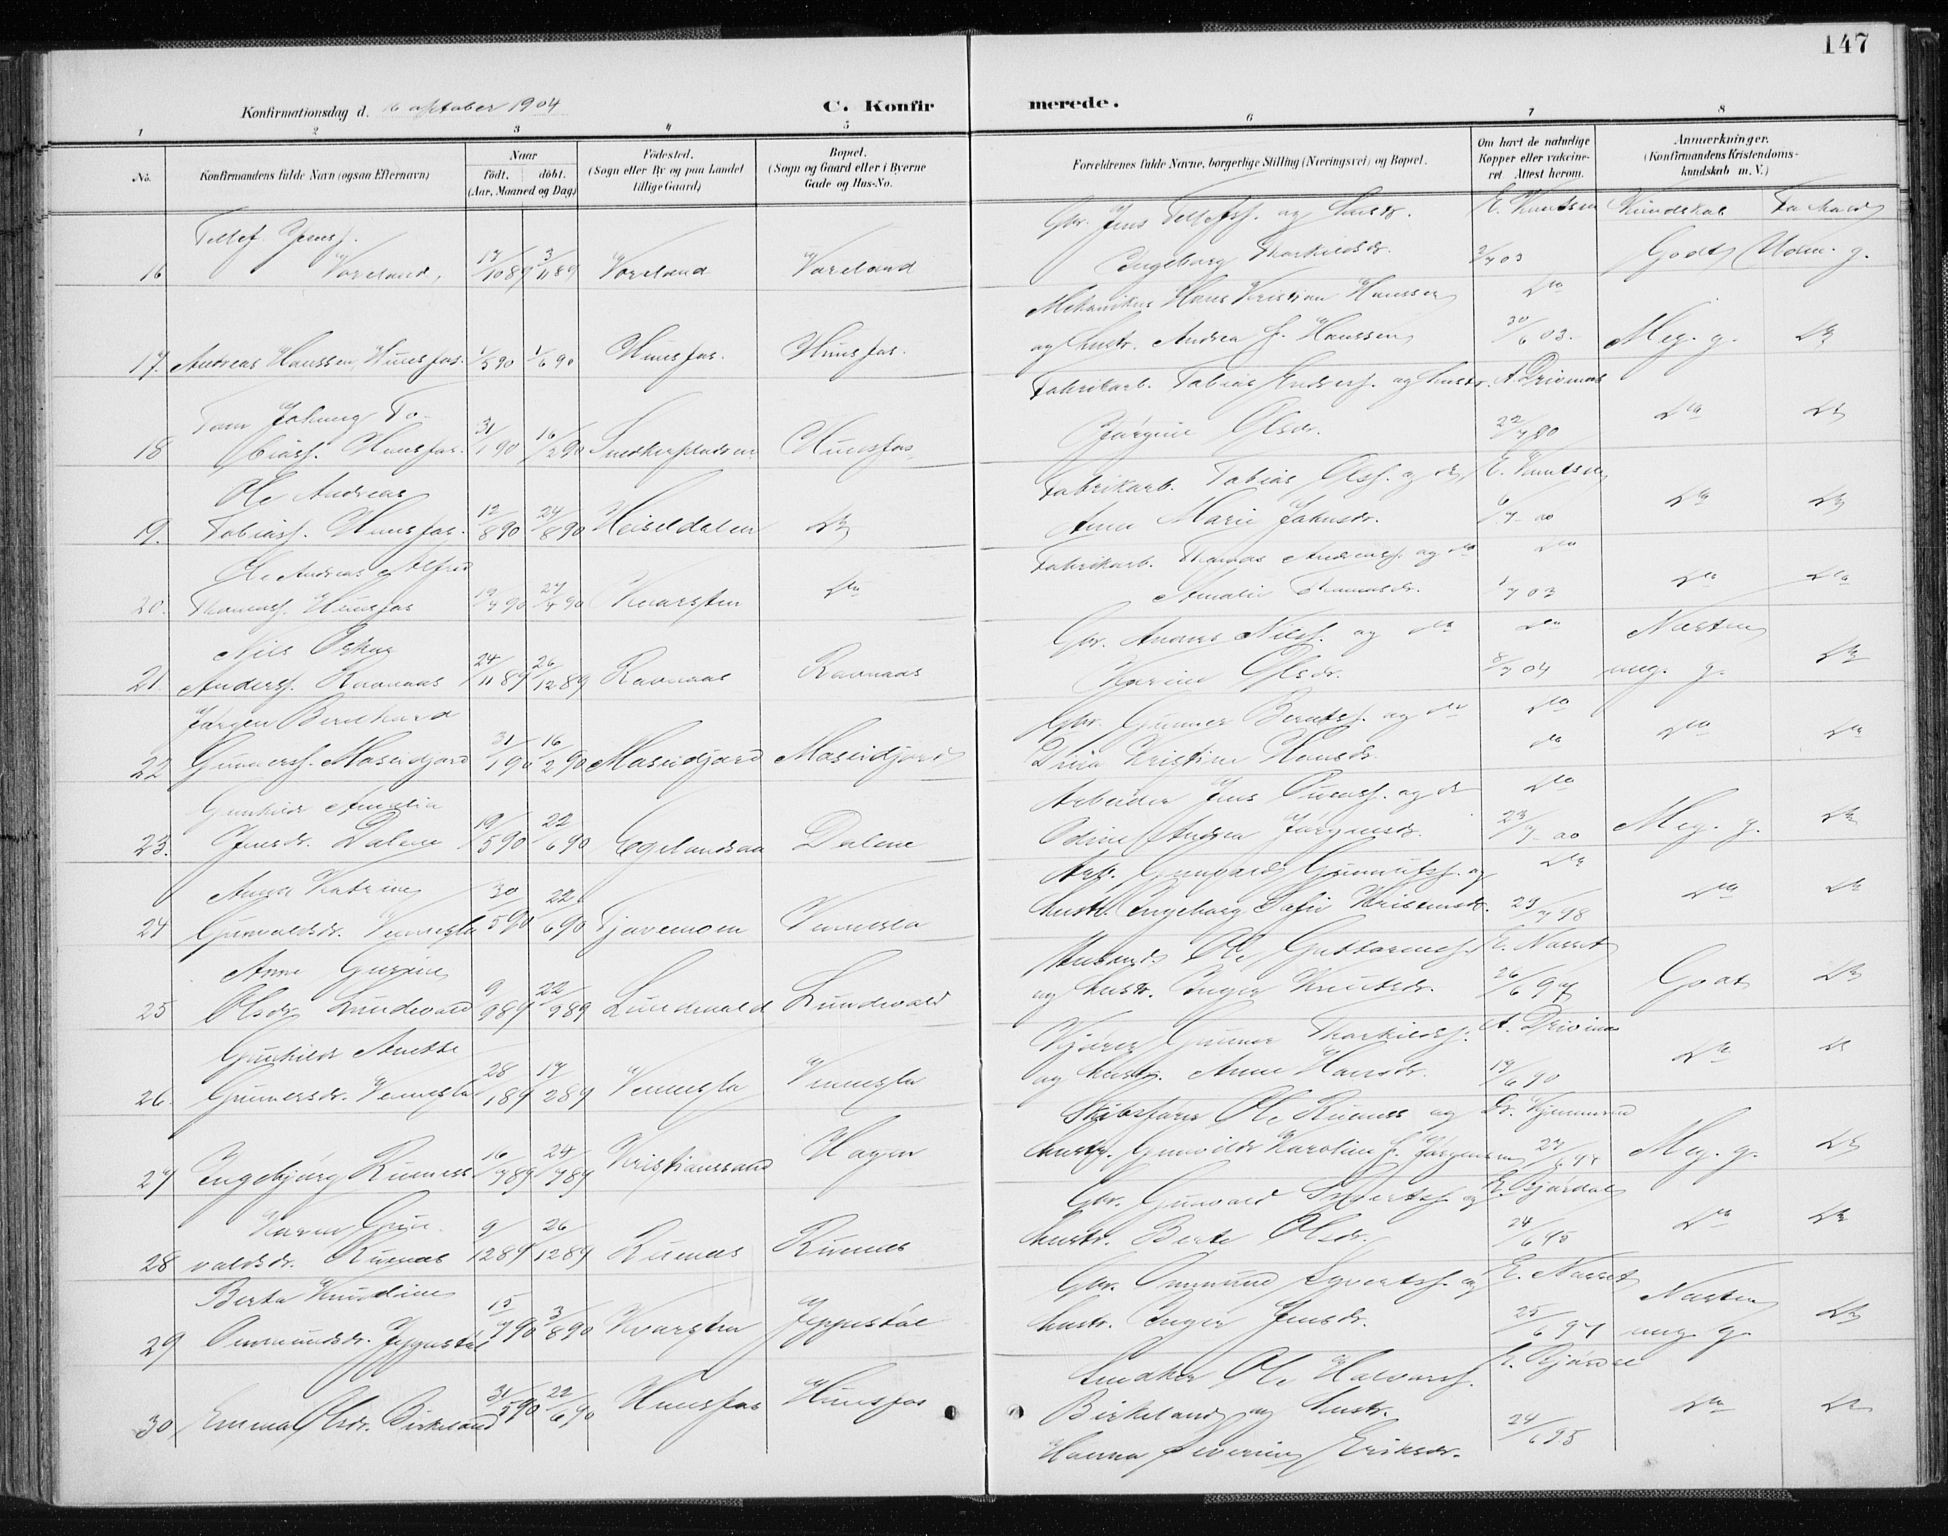 147
Konfirmationsdag d. 16 oktober 1904
C. Konfirmerede.
1 2 3 4 5 6 7 8
No.
Konfirmandens fulde Navn (ogsaa Efternavn)
Naar
født. døbt.
(Aar, Maaned og Dag)
Fødested.
(Sogn eller By og paa Landet
tillige Gaard)
Bopæl.
(Sogn og Gaard eller i Byerne
Gade og Hus-No.
Forældrenes fulde Navne, borgerlige Stilling (Næringsvei) og Bopæl.
Om havt de naturlige
Kopper eller vakcine-
ret Attest herom.
Anmærkninger.
(Konfirmandens Kristendoms-
kundskab m. V.)
Tellef Jensf. Gbr. Jens Tellefsf. og hustr. E. Knutsen Kundskab
16 Vareland 17/10 89 3/11 89 Vareland Vareland Ingeborg Tharkildsdr. 2/7 03 Godt Udm. g.
Mekanikus Hans Kristian Hanssen Do
17. Andreas Hanssen Hunsfos. 1/5 90 1/6 90 Hunsfos. Hunsfos. og hustr. Andrea f. Hanssen 30/6 03. Meg. g. Do
Fabrikarb. Tobias Andersf. og hustr. A. Drivenes
Tom Johang To-
18 biasf. Hunsfos. 31/1 90 16/2 90 Snedkerpladsen Hunsfos Jørgine Olsdr. 22/7 90 Do Do
Ole Andreas Fabrikarb. Tobias Olsf. og do E. Knutsen
19. Tobiasf. Hunsfos. 12/8 90 24/8 90 Heiseldalen Do Anne Marie Jahnsdr. 6/7 00 Do Do
Ole Andreas Alfred Fabrikarb. Thomas Andersf. og do Do
20. Thomasf. Hunsfos 19/4 90 27/4 90 Kvarsten Do Amalie Thomasdr. 1/7 03 Do Do
Nils Oskar Gbr. Anders Nilsf. og do Do Næsten
21. Andersf. Ravnaas 24/11 89 26/12 89 Ravnaas Ravnaas Karine Olsdr. 8/7 04 meg. g. Do
Jørgen Bernhard Gbr. Gunner Berntsf. og do Do
22 Gunnersf. Moseidjord 31/1 90 16/2 90 Moseidjord Moseidjord Kristine Hansdr. Do Do Do
Gunhild Amalia Arbeider Jens og do Do
23. Jensdr. Dalene 19/5 90 22/6 90 Egelandsaa Dalene Odine Andrea Jørgensdr. 23/7 00 Meg. g. Do
Anna Katrine Arb. Gunvald og Do
24 Gunvaldsdr. Vennesla 30/5 90 22/6 90 Vennesla hustr. Ingeborg Sofie 23/7 98 Do Do
Anne Gurine Ole Guttormsf. E. Næset
25 Olsdr. Lundevold 9/9 89 22/9 89 Lundevold Lundevold og hustr. Inger Knutsdr. 26/6 97 Godt Do
Gunhild Anette Gunner Tharkildsf. A. Drivenes
26. Gunnersdr. Vennesla 28/1 89 17/2 89 Vennesla Vennesla og hustr. Anne Hansdr. 19/6 90 Do Do
Skibsfører Ole Rueness og
27 Ingebjørg Rueness 16/7 89 24/7 89 Kristianssand Hagen hustr. Gunvilde Karoline f. Jørgensen Meg. g. Do
Karen Gun- Gbr. Gunvald Syvertsf. og E. Bjørdal
28 valdsdr. Ruenes 9/12 89 26/12 89 Ruenes Ruenes hustr. Berte Olsdr. 24/6 95 Do Do
Berta Knudine Gbr. Ommund Syvertsf. og E. Næset Næsten
29 Ommundsdr. Jeppestøl 15/7 90 3/8 90 Kvarsten Jeppestøl hustr. Inger Jensdr. 25/6 97 meg. g. Do
Snedker Ole Halvorsf. E. Bjørdal
30 Emma Olsdr. Birkeland 31/5 90 22/6 90 Hunsfos Hunsfos Birkeland og hustr. 24/6 95 Do Do
Hanna Severine Eriksdr.